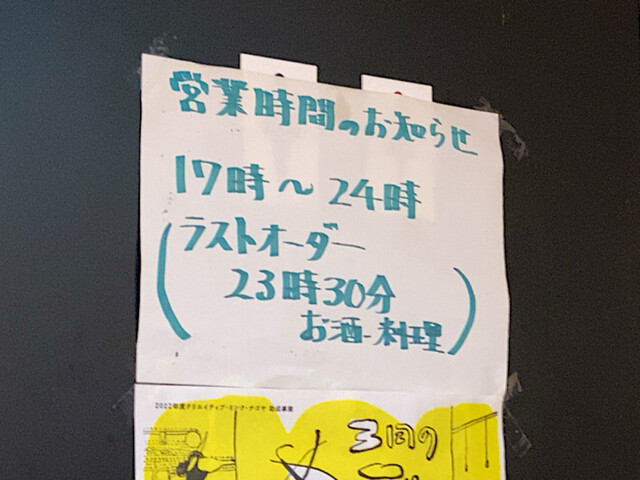 営業時間のお知らせ
17時～24時
(ラストオーダー
23時30分
お酒-料理)
2022年度クリエイティブ・リンク・ナゴヤ 助成事業
3回の